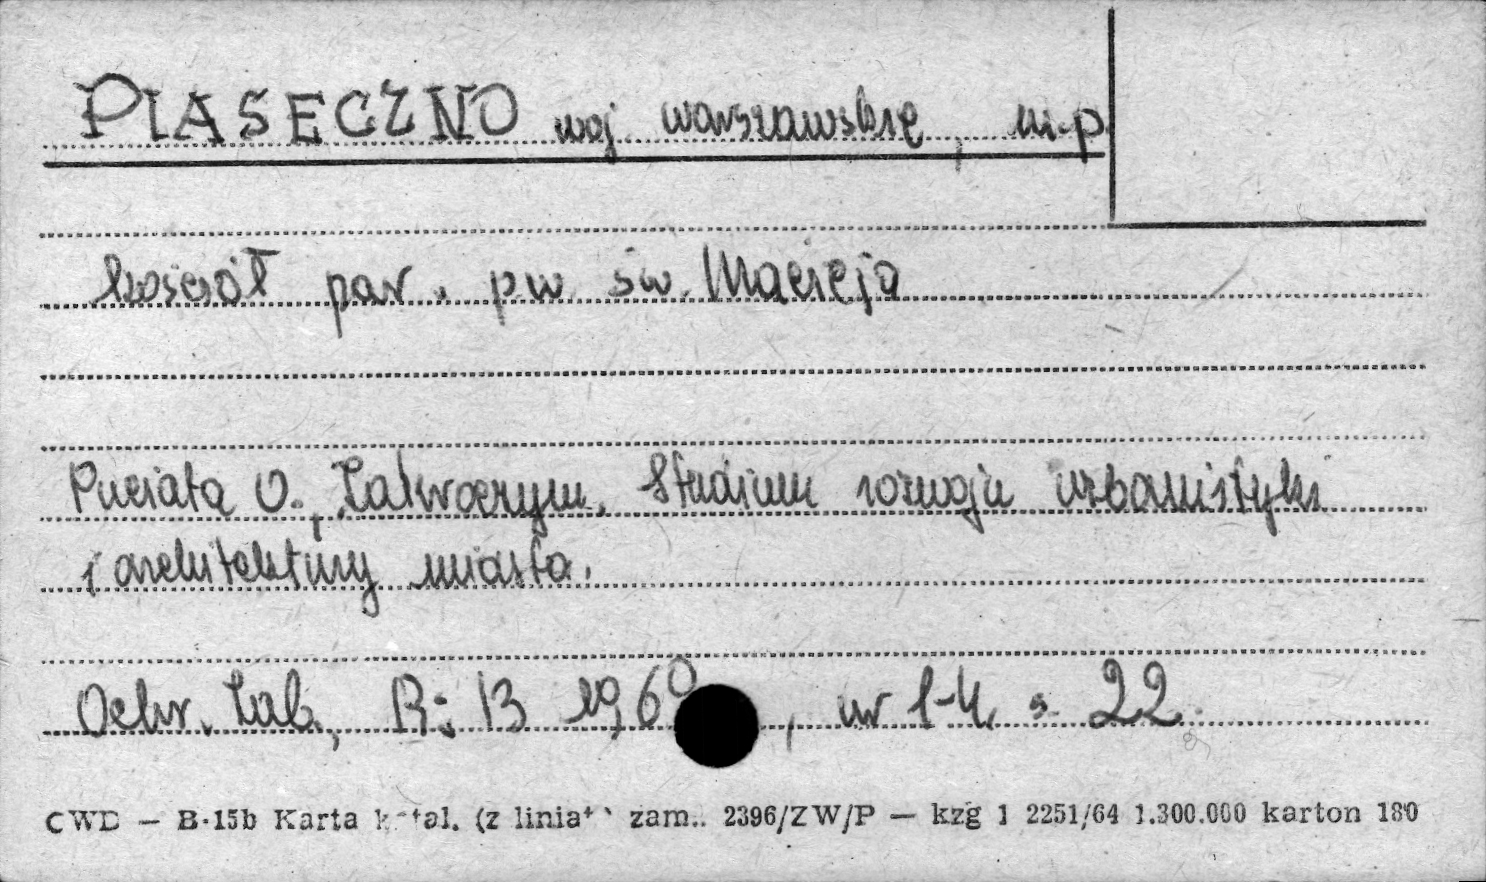 PIASECZNO woj warszawskie, m.p.
kościół par. pw św. Macieja
Puciata O., Zakroczym. Studium rozwoju urbanistyki
i architektury miasta.
Ochr. Zab., R: 13 1960, nr 1-4, s. 22.
CWD — B-15b Karta katal. (z liniat) zam. 2396/ZW/P — kzg 1 2251/64 1.300.000 karton 180